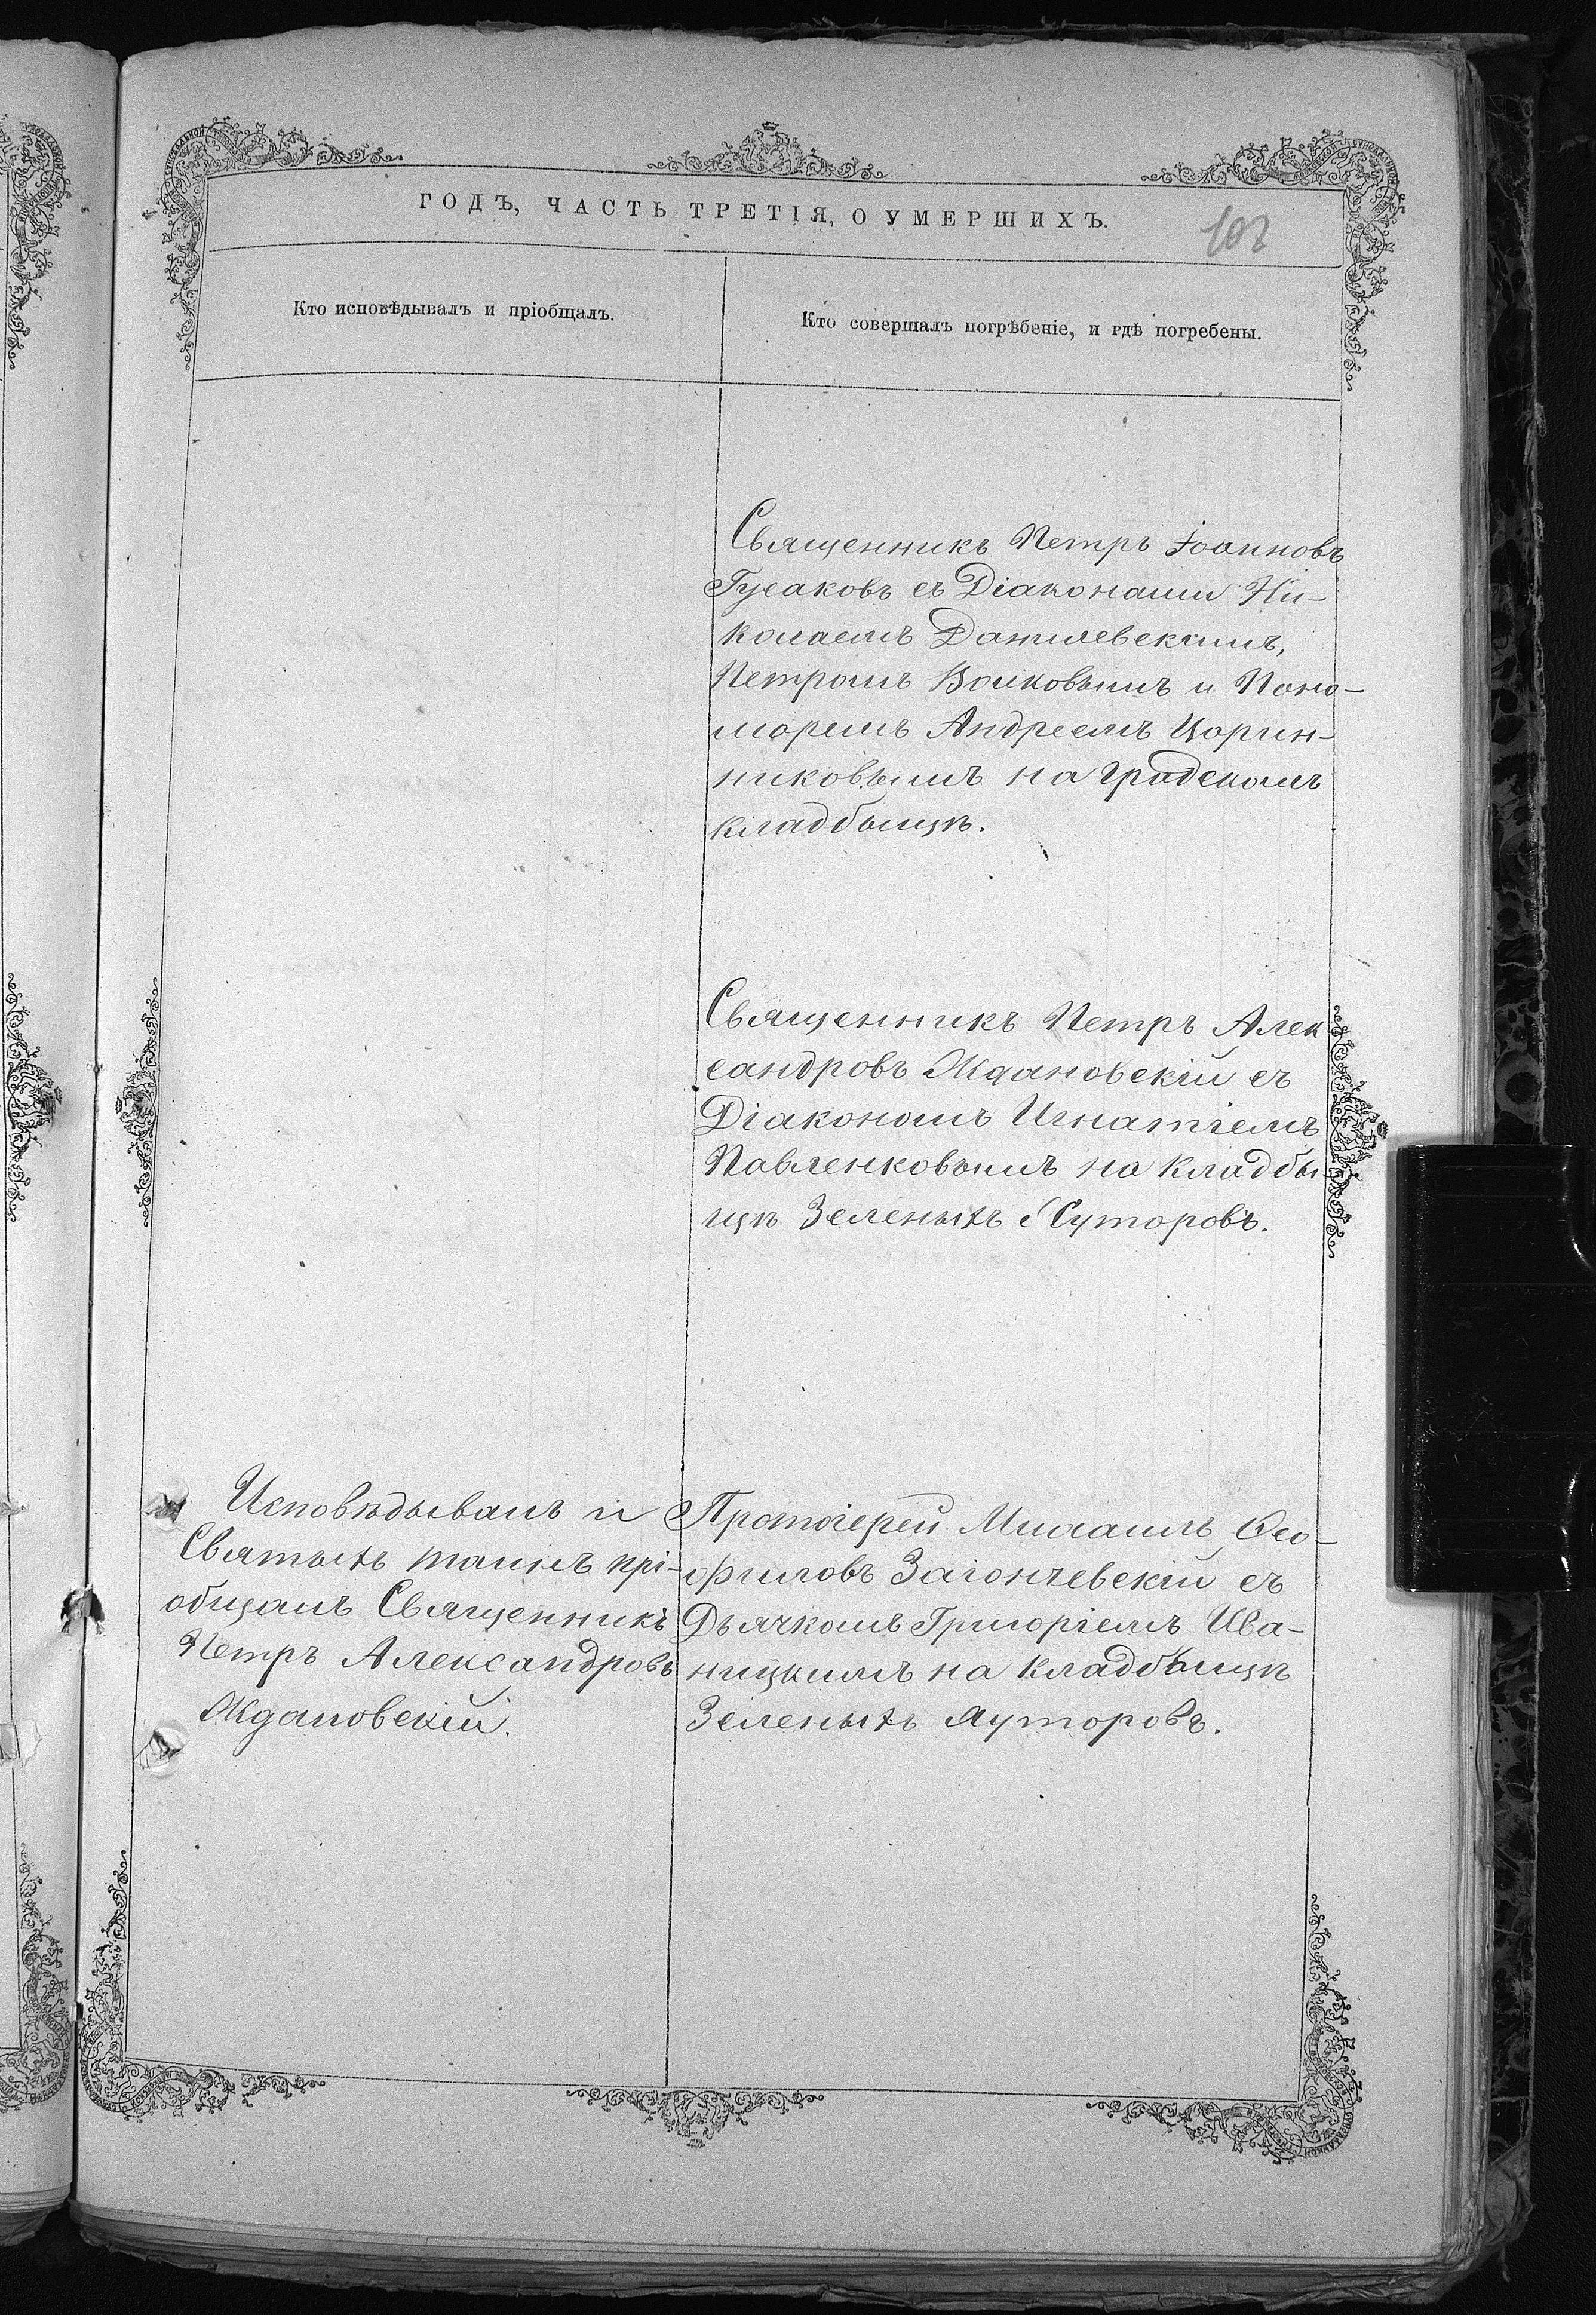 ГОДЪ, ЧАСТЬ ТРЕТІЯ, О УМЕРШИХЪ.
Кто исповѣдывалъ и пріобщалъ.
Кто совершалъ погрѣбеніе, и гдѣ погребены.
Священникъ Петръ Іоанновъ
Гусаковъ съ Діаконами Ни-
колаемъ Данилевскимъ,
Петромъ Волковымъ и Поно-
моремъ Андреемъ
на градскомъ
кладбыщѣ.
Священникъ Петръ Алек
сандровъ Ждановскій съ
Діакономъ Игнатіемъ
Павленковымъ на кладбы-
щѣ Зеленыхъ Хуторовъ.
Исповѣдывалъ и
Святыхъ таинъ прі-
общалъ Священникъ
Петръ Александровъ
Ждановскій.
Протоіерей Михаилъ Ѳео-
филовъ Загончевскій съ
Дьячкомъ Григоріемъ Ива-
ницкимъ на кладбыщѣ
Зеленыхъ хуторовъ.